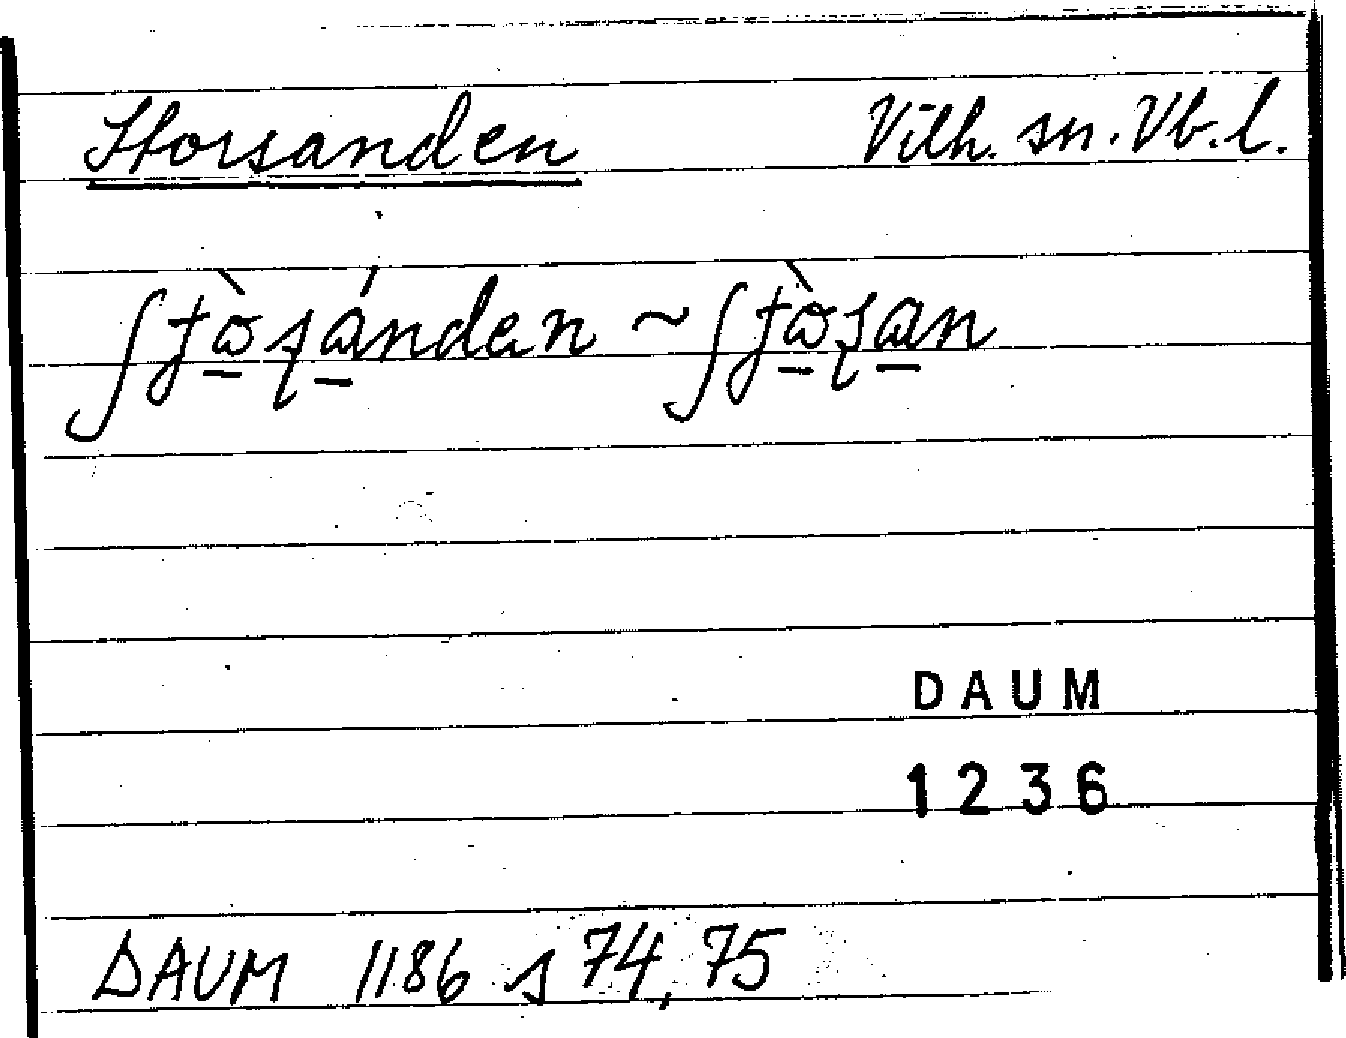 Storsanden Vilh. sn. Vb. l.
ʃƫò̱ʂá̱nden ~ ʃƫò̱ʂa̱n
DAUM
1236
DAUM 1186 s 74, 75